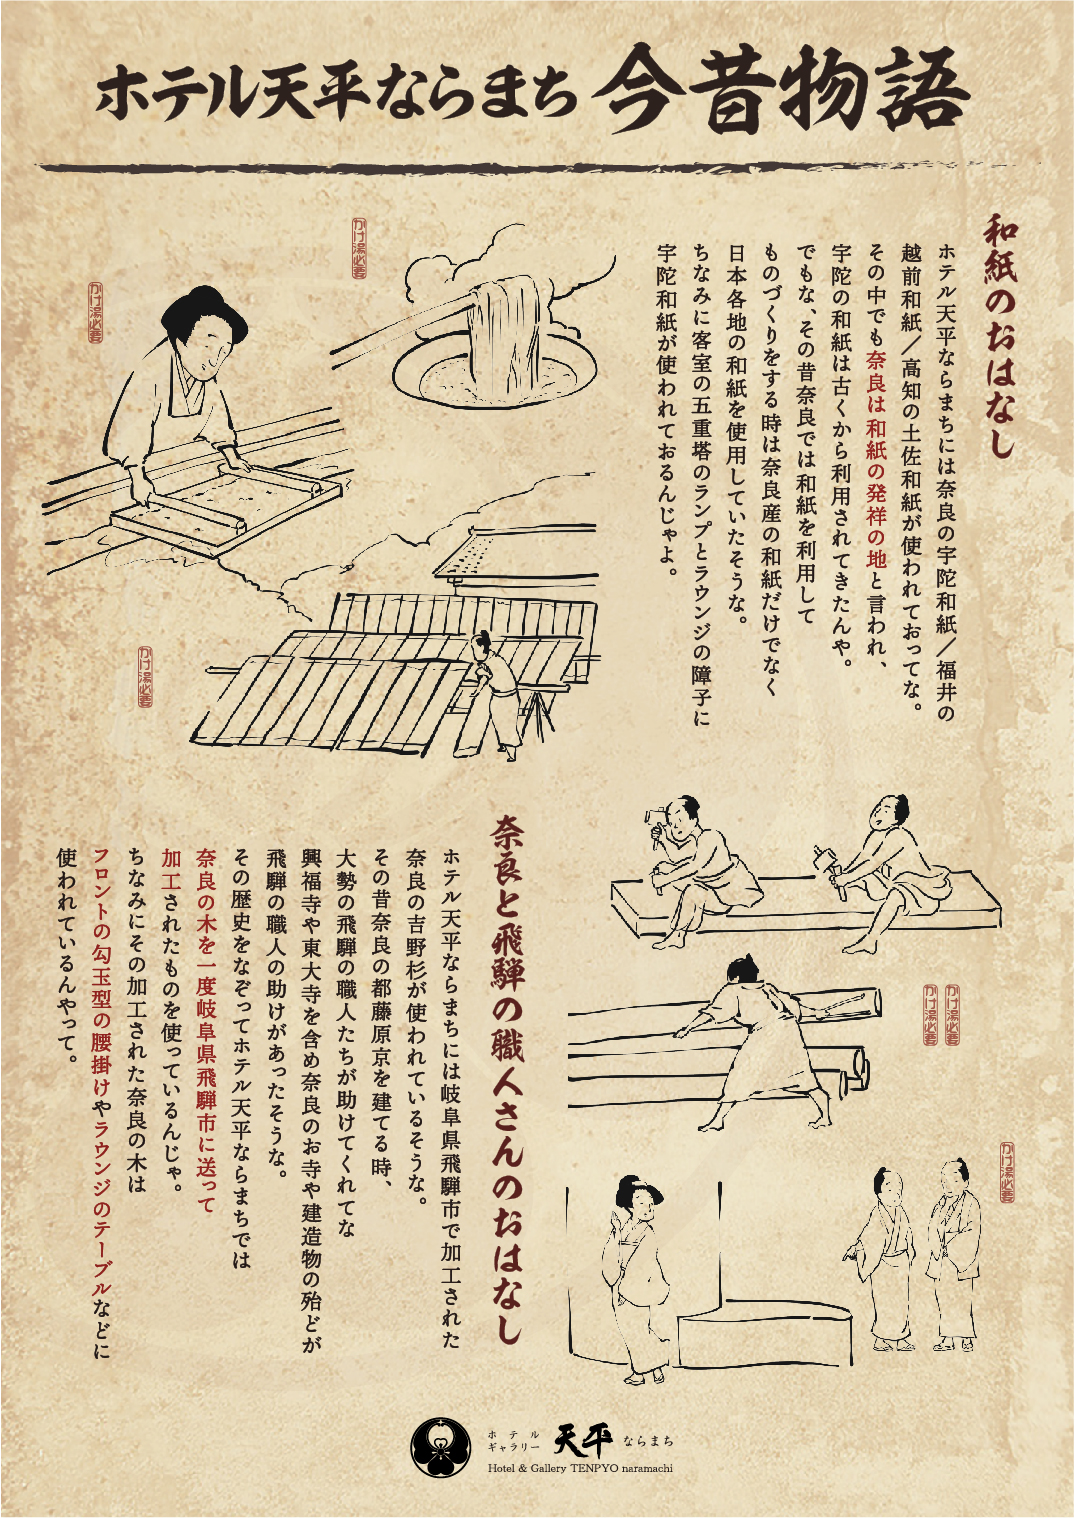 ホテル天平ならまち 今昔物語
和紙のおはなし
ホテル天平ならまちには奈良の宇陀和紙／福井の
越前和紙／高知の土佐和紙が使われておってな。
その中でも奈良は和紙の発祥の地と言われ、
宇陀の和紙は古くから利用されてきたんや。
でもな、その昔奈良では和紙を利用して
ものづくりをする時は奈良産の和紙だけでなく
日本各地の和紙を使用していたそうな。
ちなみに客室の五重塔のランプとラウンジの障子に
宇陀和紙が使われておるんじゃよ。
かけ湯必要
かけ湯必要
かけ湯必要
奈良と飛騨の職人さんのおはなし
ホテル天平ならまちには岐阜県飛騨市で加工された
奈良の吉野杉が使われているそうな。
その昔奈良の都藤原京を建てる時、
大勢の飛騨の職人たちが助けてくれてな
興福寺や東大寺を含め奈良のお寺や建造物の殆どが
飛騨の職人の助けがあったそうな。
その歴史をなぞってホテル天平ならまちでは
奈良の木を一度岐阜県飛騨市に送って
加工されたものを使っているんじゃ。
ちなみにその加工された奈良の木は
フロントの勾玉型の腰掛けやラウンジのテーブルなどに
使われているんやって。
かけ湯必要
かけ湯必要
かけ湯必要
ホテル
ギャラリー
天平
ならまち
Hotel & Gallery TENPYO naramachi